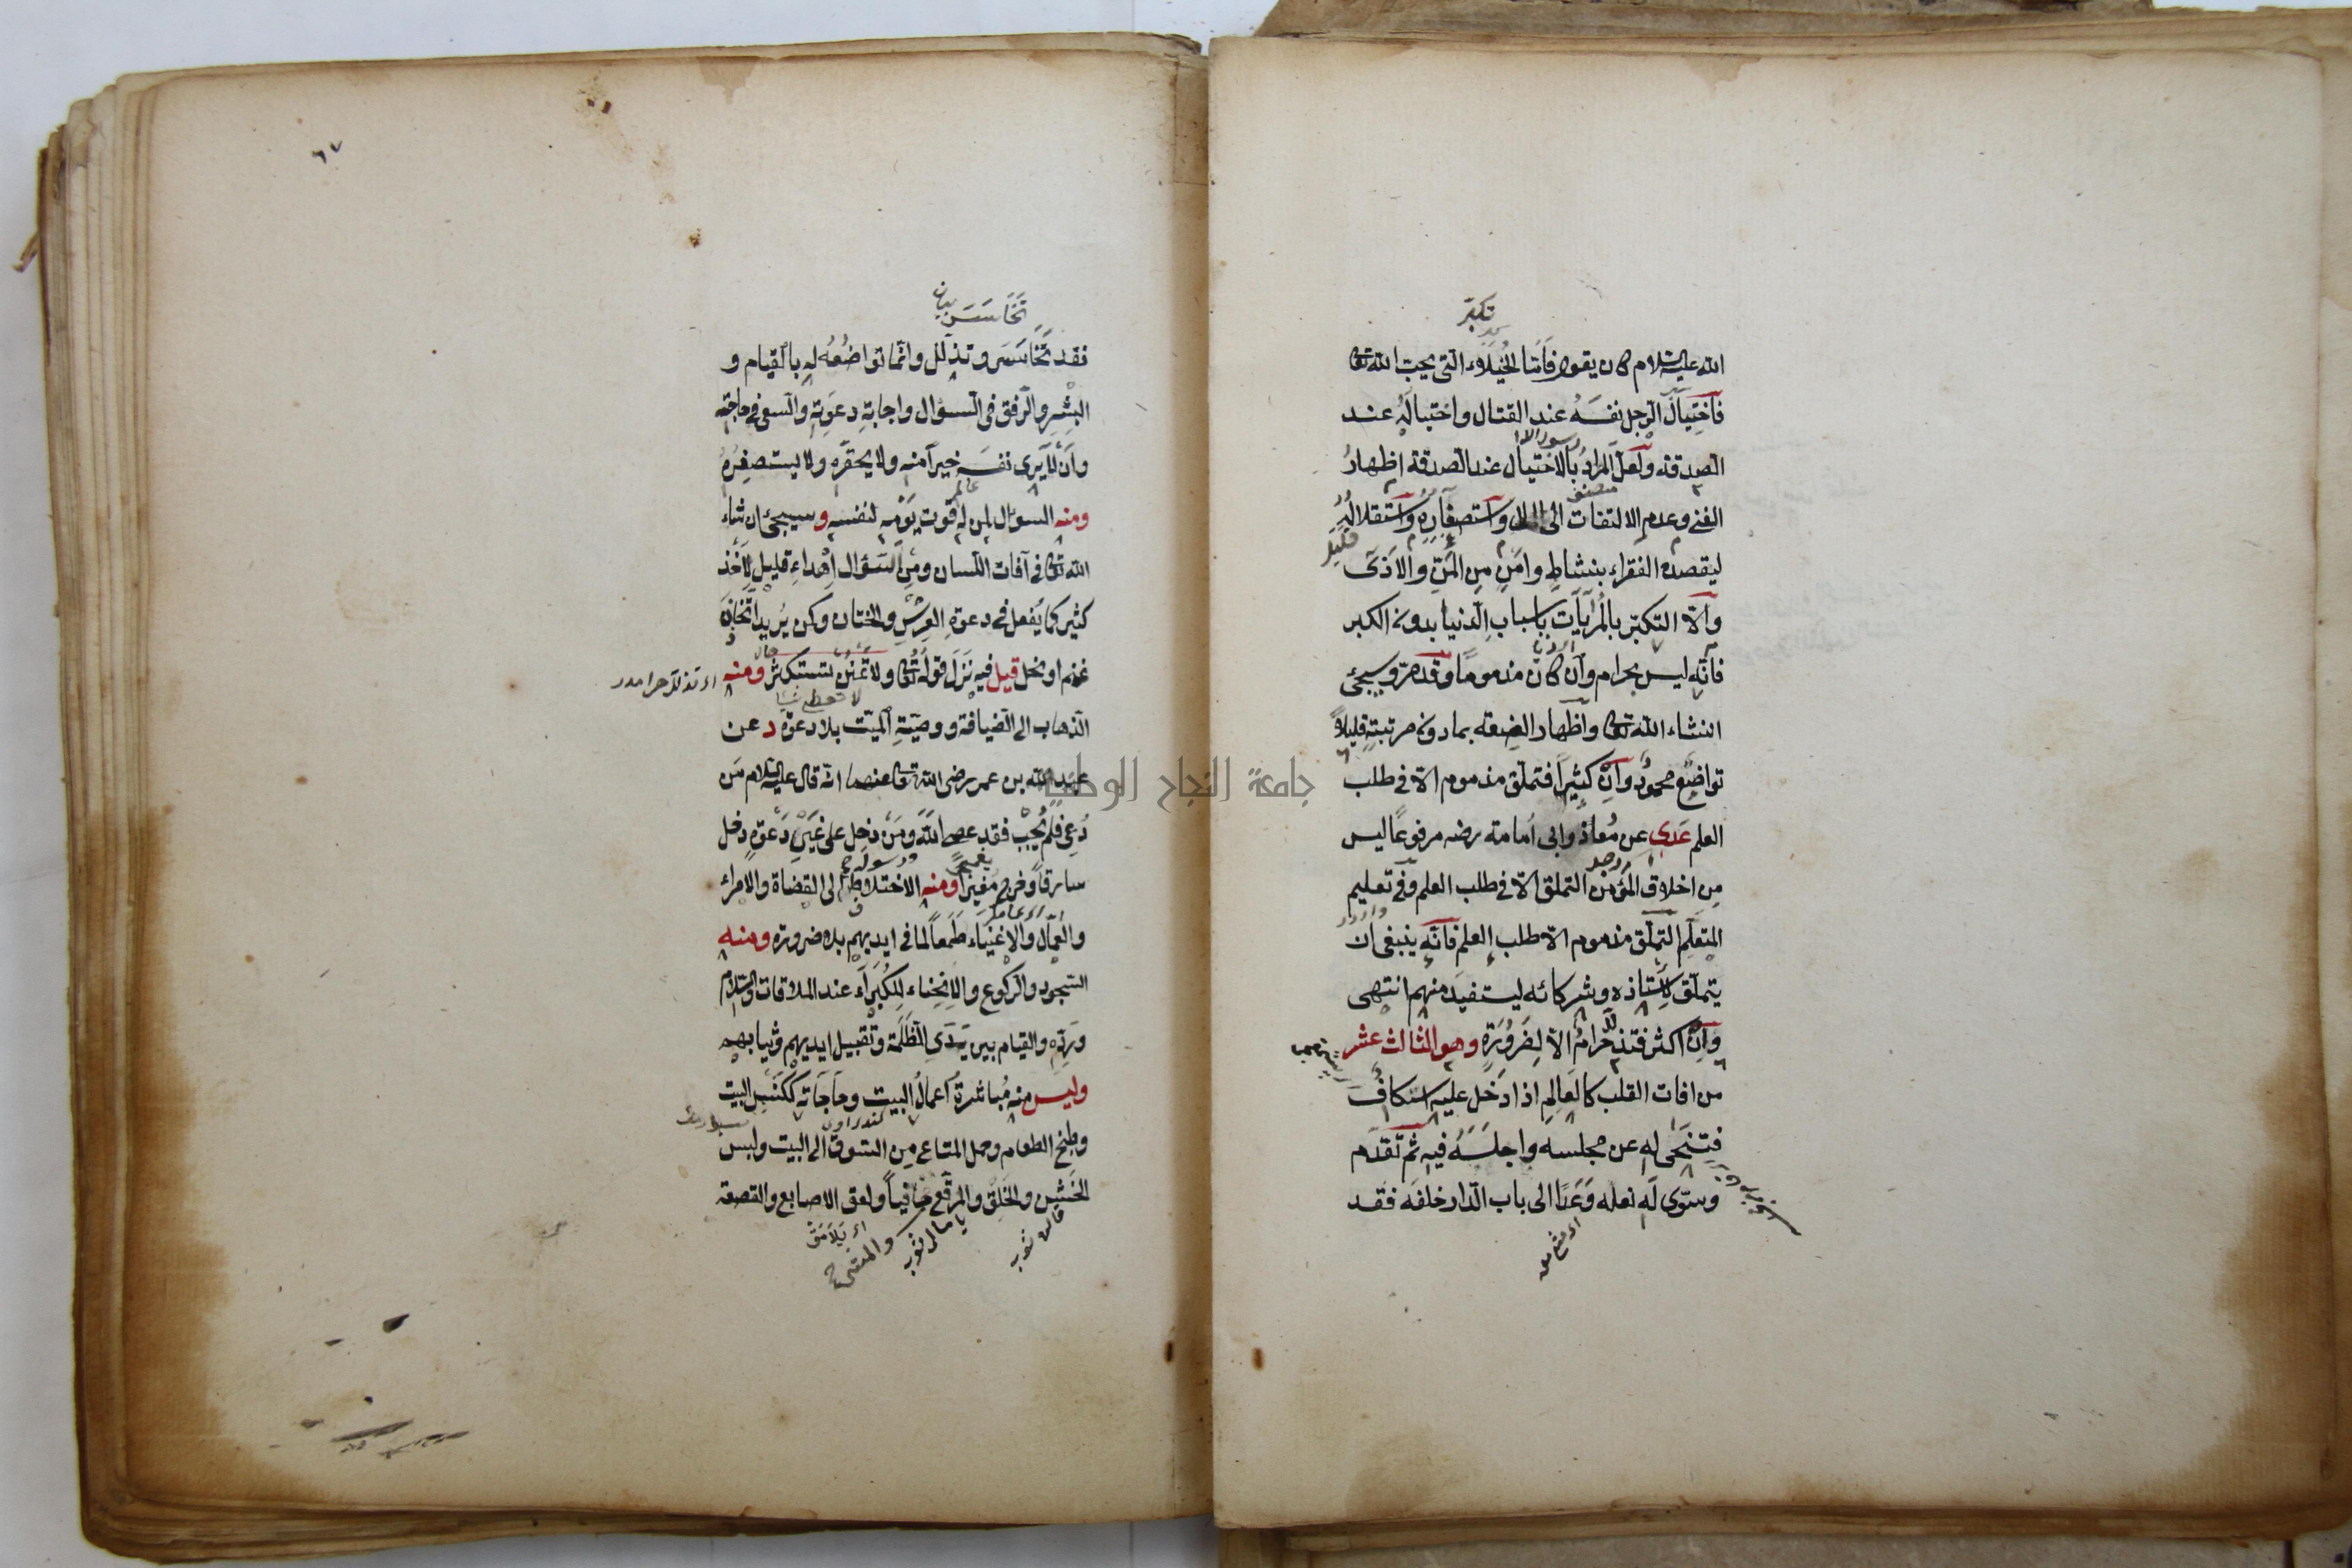 تكبر
الله عليه السلام كان يقول فاما الخيلاء التي يحب الله تعالى
فاختيال الرجل نفسه عند القتال واختياله عند
الصدقة ولعل المراد بالاختيال عند الصدقة اظهار
الغنى وعدم الالتفات الى المال واستصغاره واستقلاله
ليقصده الفقراء بنشاط وامن من المن والاذى
والا التكبر بالمرايات باسباب الدنيا بدون الكبر
فانه ليس بحرام وان كان مذموما وقد مر وسيجئ
انشاء الله تعالى واظهار الضعة بما دون مرتبته قليلا
تواضع محمود وان كثيرا فتملق مذموم الا في طلب
العلم عدى عن معاذ وابى امامة رضه مرفوعا ليس
من اخلاق المؤمن التملق الا في طلب العلم وفي تعليم
المتعلم التملق مذموم الا طلب العلم فانه ينبغى ان
يتملق لاستاذه وشركائه ليستفيد منهم انتهى
وان اكثر فتذلل حرام الا لضرورة وهو الثالث عشر
من افات القلب كالعالم اذا دخل عليه اسكاف
فتنحى له عن مجلسه واجلسه فيه ثم تقدم
وسوى له نعله وعدا الى باب الدار خلفه فقد
٦٧
تخاسس
فقد تخاسس وتذلل وانما تواضعه له بالقيام و
البشر والرفق في السؤال واجابة دعوته والسعى في حاجته
وان لا يرى نفسه خيرا منه ولا يحقره ولا يستصغره
ومنه السؤال لمن له قوت يومه لنفسه وسيجئ ان شاء
الله تعالى في آفات اللسان ومن السؤال اهداء قليل لاخذ
كثير كما يفعل في دعوة العرس والختان وكمن يريد اتخاذ
غنم او نحل قيل فيه نزل قوله تعالى ولا تمنن تستكثر ومنه
الذهاب الى الضيافة ووصية الميت بلا دعوة د عن
عبد الله بن عمر رضى الله تعالى عنهما انه قال عليه السلام من
دعى فلم يجب فقد عصى الله ومن دخل على غير دعوة دخل
سارقا وخرج مغيرا ومنه الاختلاط الى القضاة والامراء
والعمال والاغنياء طمعا لما في ايديهم بلا ضرورة ومنه
السجود والركوع والانحناء للكبراء عند الملاقات والسلام
ورده والقيام بين يدى الظلمة وتقبيل ايديهم وثيابهم
وليس منه مباشرة اعمال البيت وحاجاته ككنس البيت
وطبخ الطعام وحمل المتاع من السوق الى البيت ولبس
الخشن والخلق والمرقع حافيا ولعق الاصابع والقصعة
جامعة النجاح الوطنية